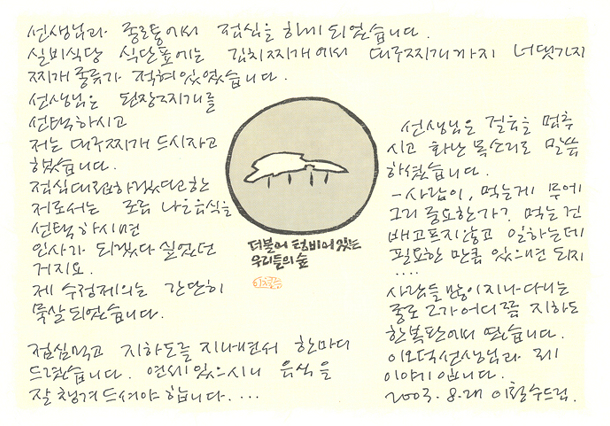 선생님과 종로통에서 점심을 하게 되었습니다.
실비식당 식단표에는 김치찌개에서 대구찌개까지 너댓가지
찌개 종류가 적혀있었습니다.
선생님은 된장찌개를
선택하시고
저는 대구찌개 드시자고
했었습니다.
점심대접하겠다고한
저로서는 조금 나은음식을
선택하시면
인사가 되겠다 싶었던
거지요.
제 수정제의는 간단히
묵살되었습니다.
점심먹고 지하도를 지나면서 한마디
드렸습니다. 연세있으시니 음식을
잘 챙겨드셔야 합니다....
더불어 텅비어있는
우리들의숲
선생님은 걸음을 멈추
시고 화난 목소리로 말씀
하셨습니다.
-사람이, 먹는게 무에
그리 중요한가? 먹는건
배고프지않고 일하는데
필요한 만큼 있으면 되지
....
사람들 많이 지나다니는
종로 2가어디쯤 지하도
한복판에서 였습니다.
이오덕선생님과 제
이야기입니다.
2003.8.27 이철수드림.